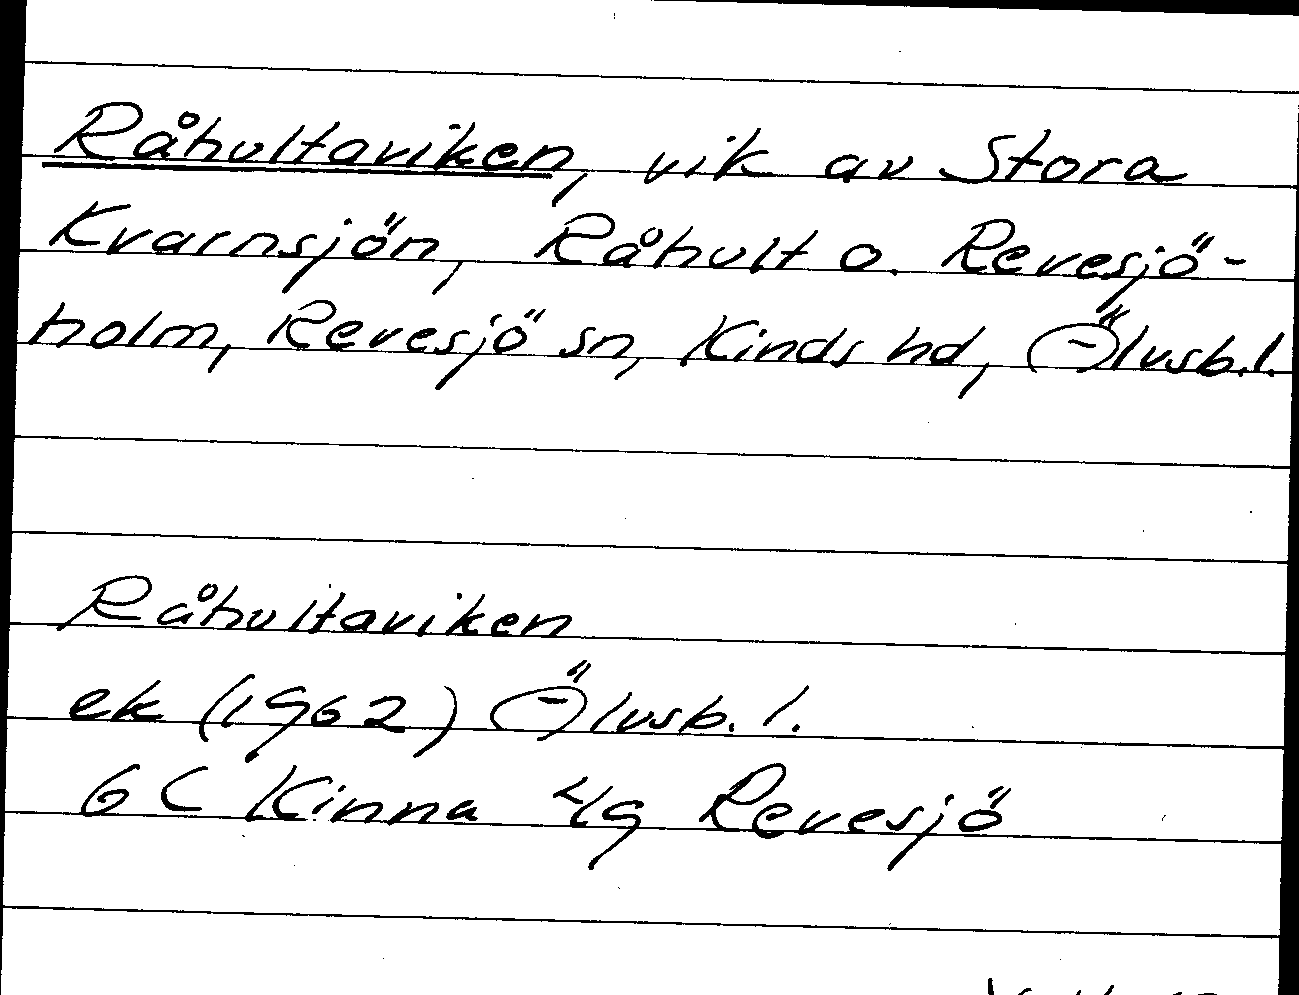 Råhultaviken, vik av Stora
Kvarnsjön, Råhult o. Revesjö-
holm, Revesjö sn, Kinds hd, Älvsb. l.
Råhultaviken
ek (1962) Älvsb. l.
6 C Kinna 4/g Revesjö